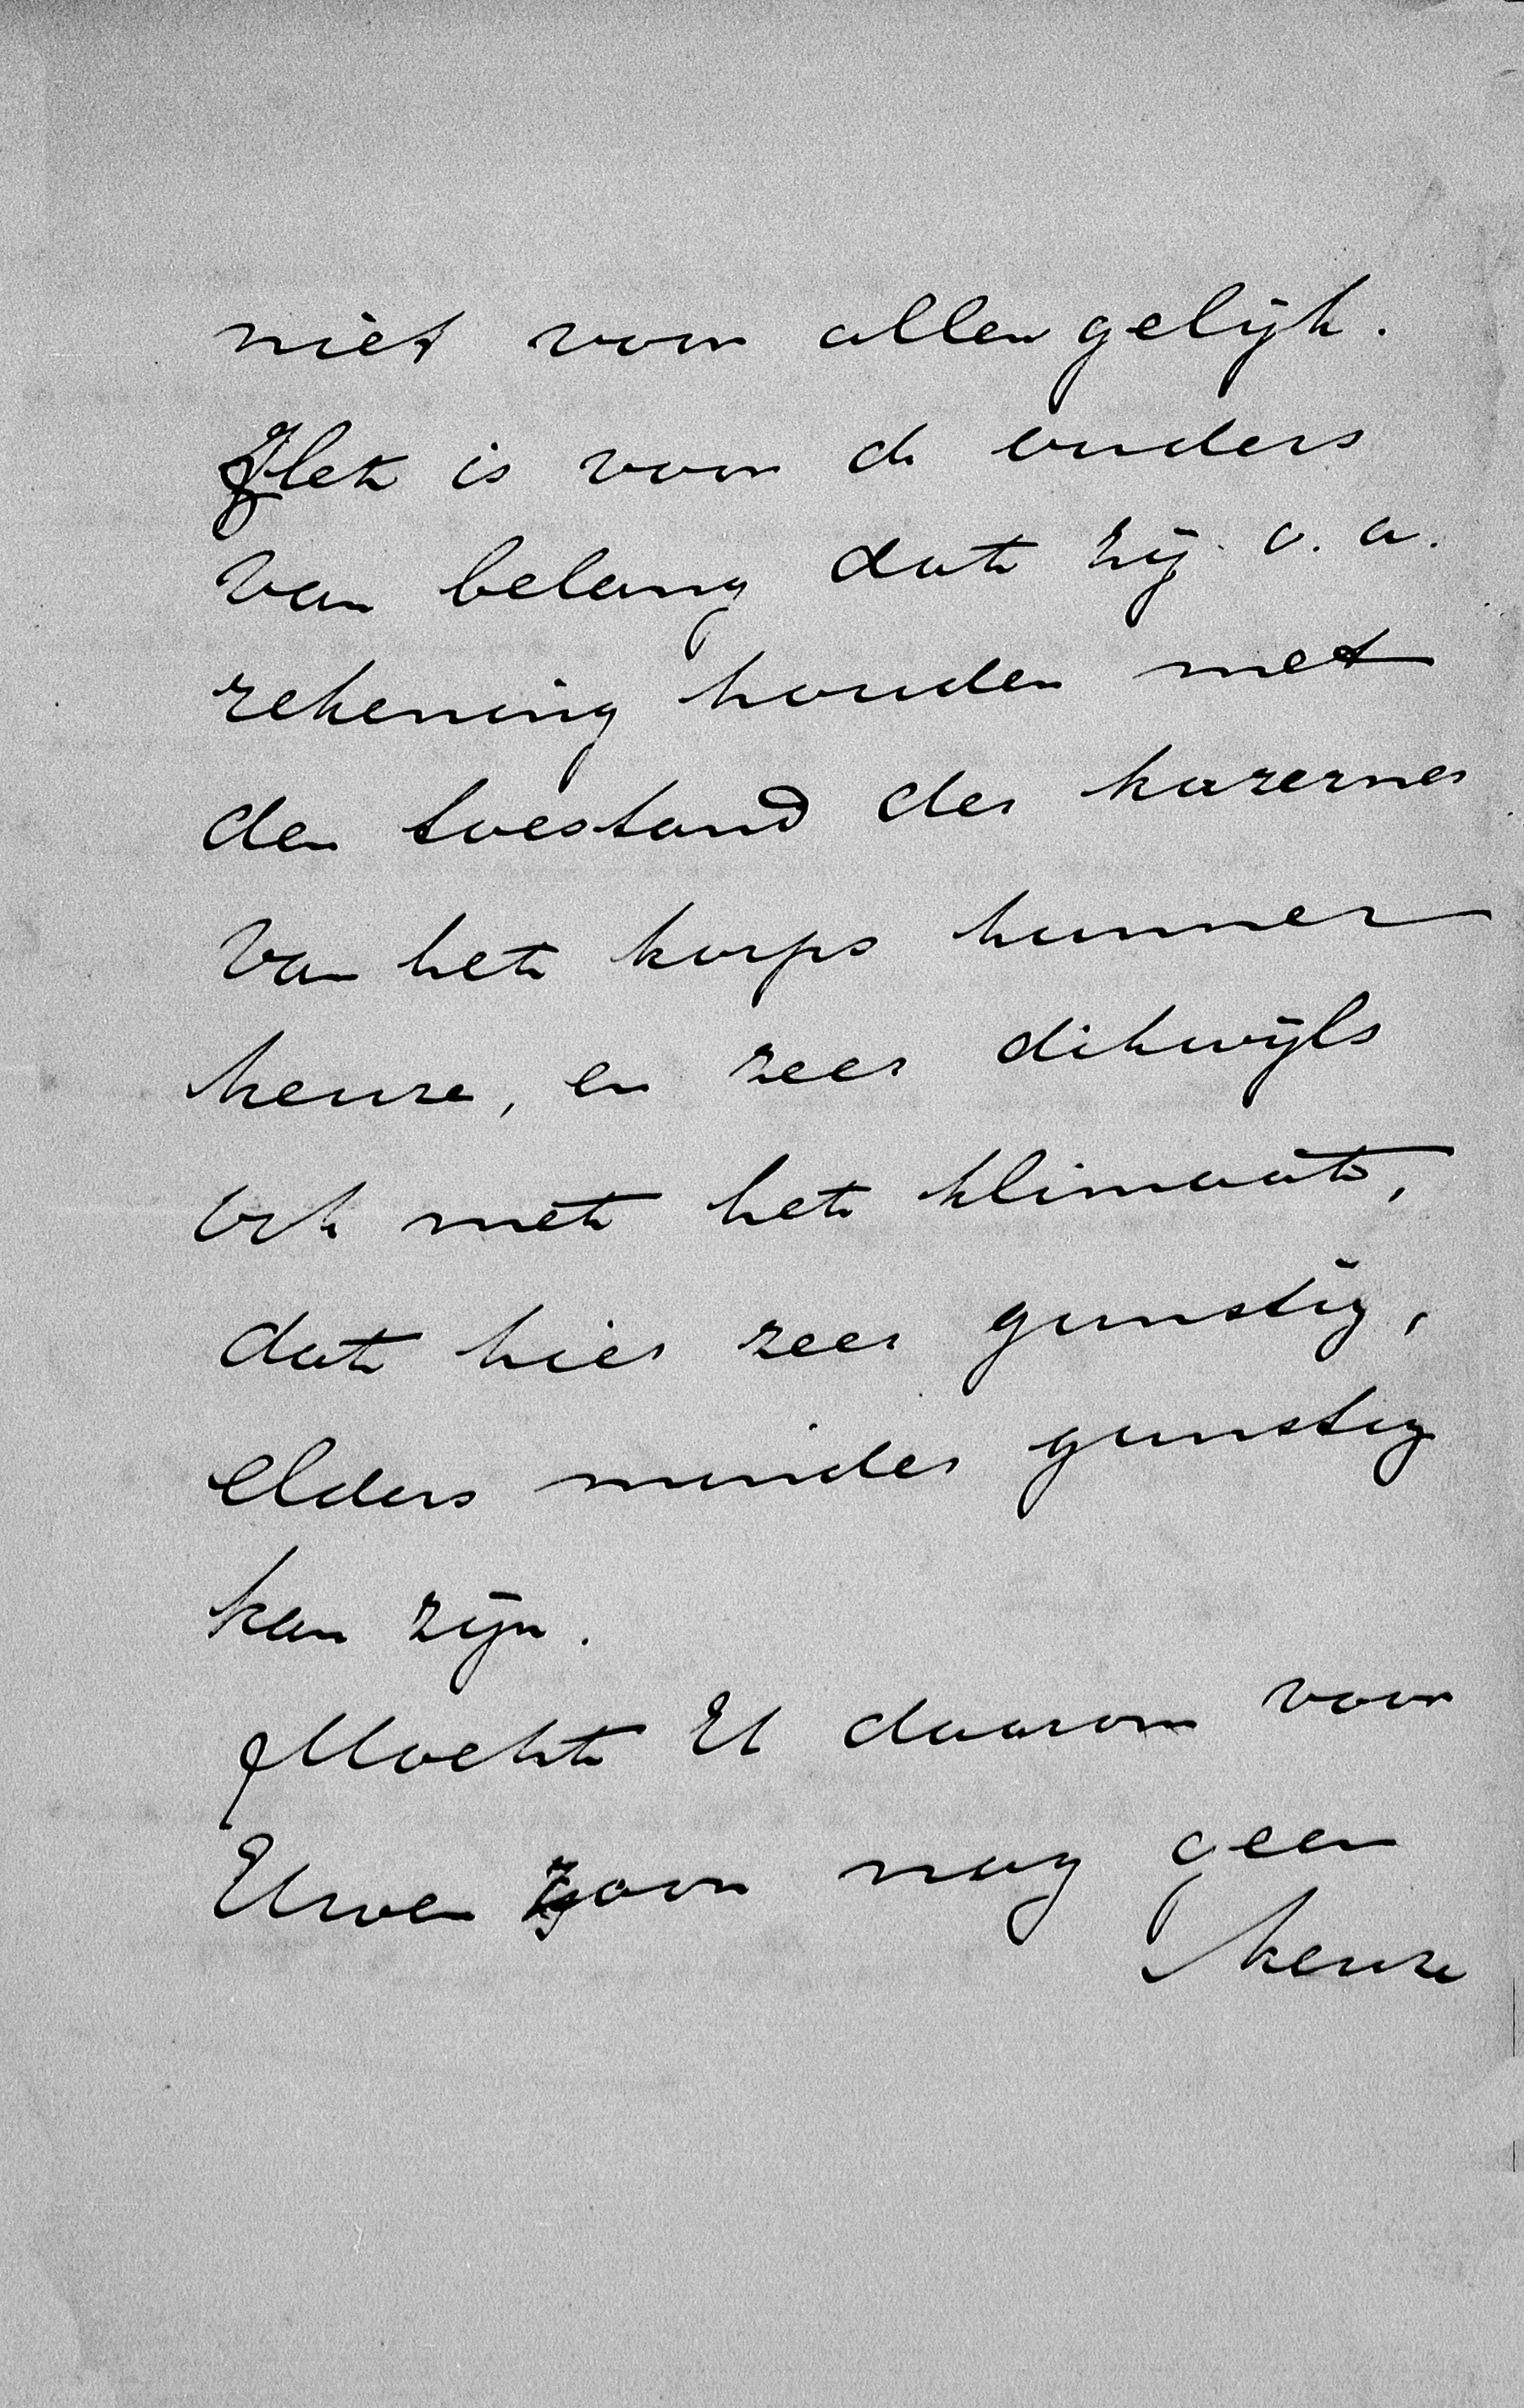 niet voor allen gelijk.
Het is voor de ouders
van belang dat zij o. a.
rekening houden met
den toestand der kazernes
van het korps hunner
keuze, en zeer dikwijls
ook met het klimaat,
dat hier zeer gunstig,
elders minder gunstig
kan zijn.
Mocht U daarom voor
Uwen zoon nog geen
keuze